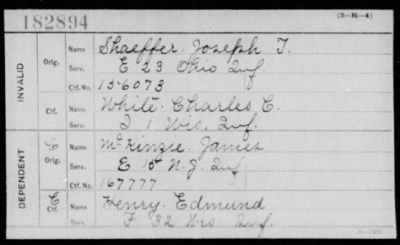 182894 (3—M—4)
INVALID Orig. Name Shaeffer, Joseph T.
Serv. E 23 Ohio Inf
Ctf. No. 156073
Ctf. Name White, Charles C.
Serv. I 1 Wis. Inf.
DEPENDENT C Orig. Name McKinzie, James
Serv. E 15 N.J. Inf
Ctf. No. 167777
C Ctf. Name Henry, Edmund
Serv. F 32 Wis. Inf.